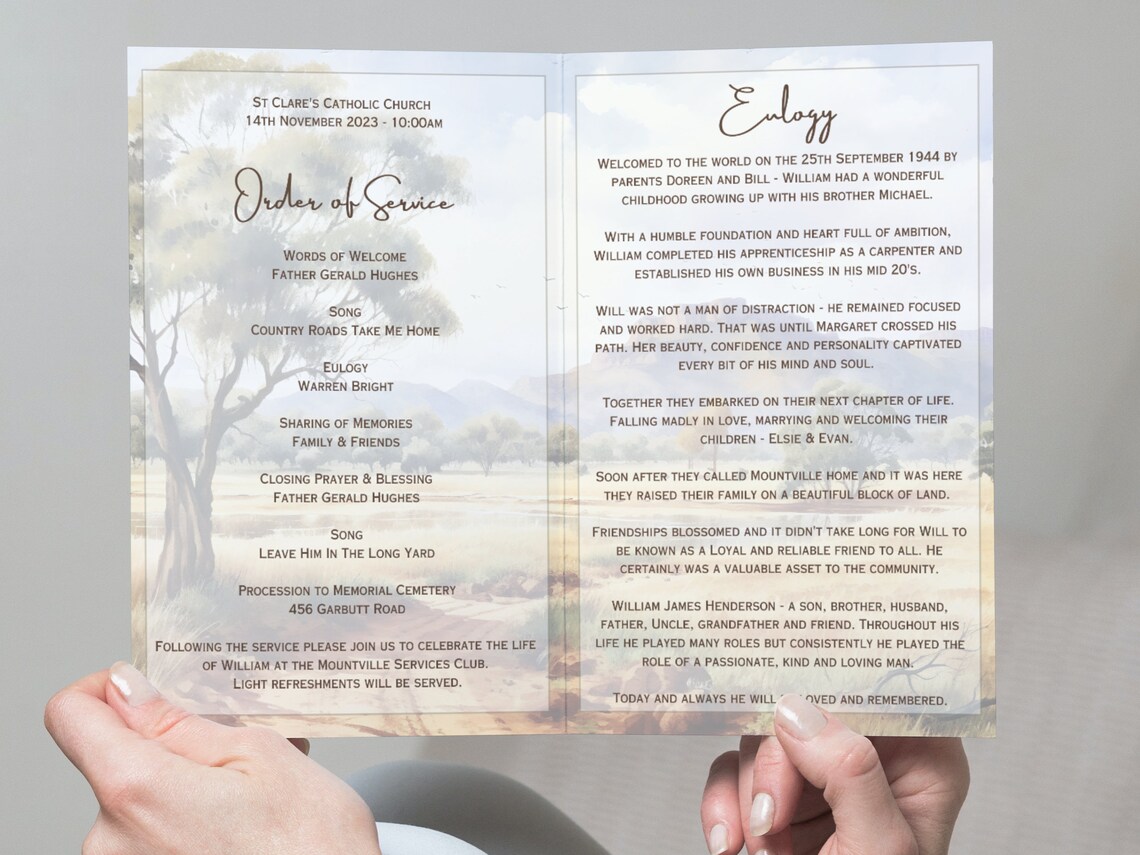 St Clare's Catholic Church
14th November 2023 - 10:00am
Order of Service
Words of Welcome
Father Gerald Hughes
Song
Country Roads Take Me Home
Eulogy
Warren Bright
Sharing of Memories
Family & Friends
Closing Prayer & Blessing
Father Gerald Hughes
Song
Leave Him In The Long Yard
Procession to Memorial Cemetery
456 Garbutt Road
Following the service please join us to celebrate the life
of William at the Mountville Services Club.
Light refreshments will be served.
Eulogy
Welcomed to the world on the 25th September 1944 by
parents Doreen and Bill - William had a wonderful
childhood growing up with his brother Michael.
With a humble foundation and heart full of ambition,
William completed his apprenticeship as a carpenter and
established his own business in his mid 20's.
Will was not a man of distraction - he remained focused
and worked hard. That was until Margaret crossed his
path. Her beauty, confidence and personality captivated
every bit of his mind and soul.
Together they embarked on their next chapter of life.
Falling madly in love, marrying and welcoming their
children - Elsie & Evan.
Soon after they called Mountville home and it was here
they raised their family on a beautiful block of land.
Friendships blossomed and it didn't take long for Will to
be known as a Loyal and reliable friend to all. He
certainly was a valuable asset to the community.
William James Henderson - a son, brother, husband,
father, Uncle, grandfather and friend. Throughout his
life he played many roles but consistently he played the
role of a passionate, kind and loving man.
Today and always he will loved and remembered.